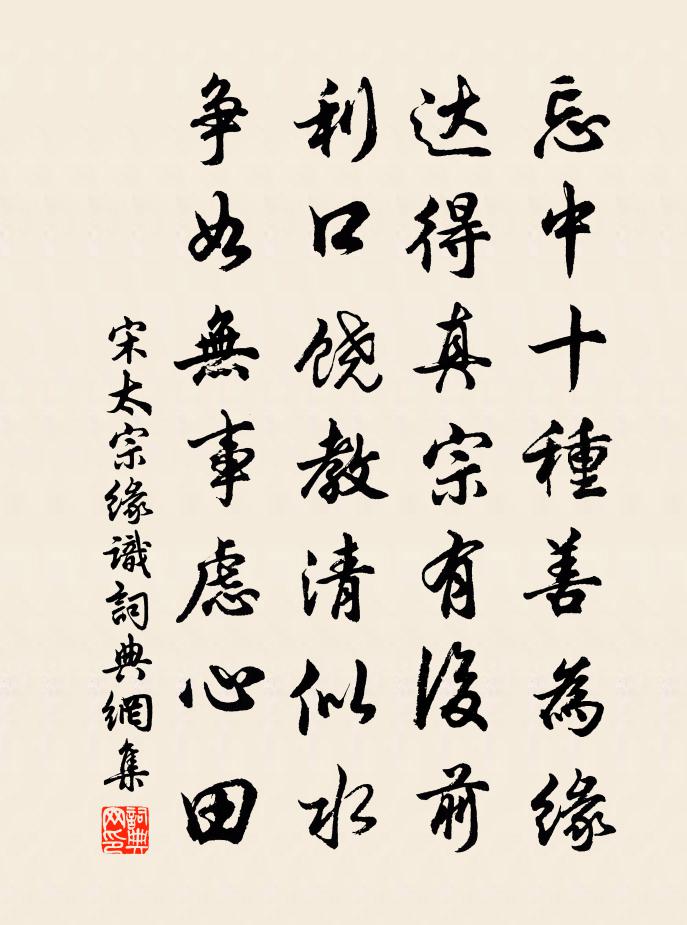 忘中十種善為緣
达得真宗有後前
利口饶教清似水
争如無事慮心田
宋太宗緣識詞典網集
詞典网印